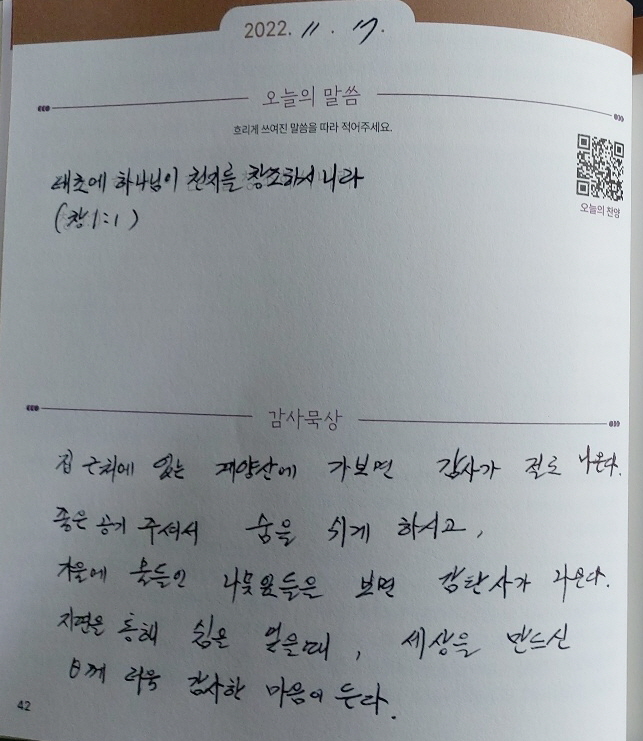 2022. 11. 17.
오늘의 말씀
흐리게 쓰여진 말씀을 따라 적어주세요.
태초에 하나님이 천지를 창조하시니라
(창 1:1)
오늘의 찬양
감사묵상
집 근처에 있는 계양산에 가보면 감사가 절로 나온다.
좋은 공기 주셔서 숨을 쉬게 하시고,
가을에 물들인 나뭇잎들을 보면 감탄사가 나온다.
자연을 통해 쉼을 얻을때, 세상을 만드신
께 더욱 감사한 마음이 든다.
42